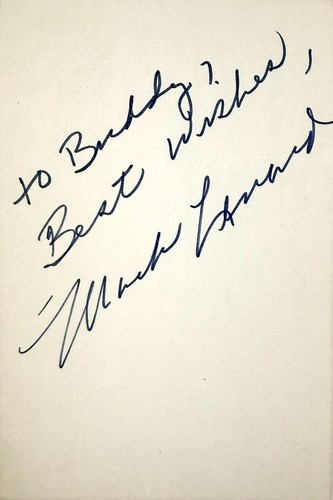 to Buddy,
Best Wishes,
Mark